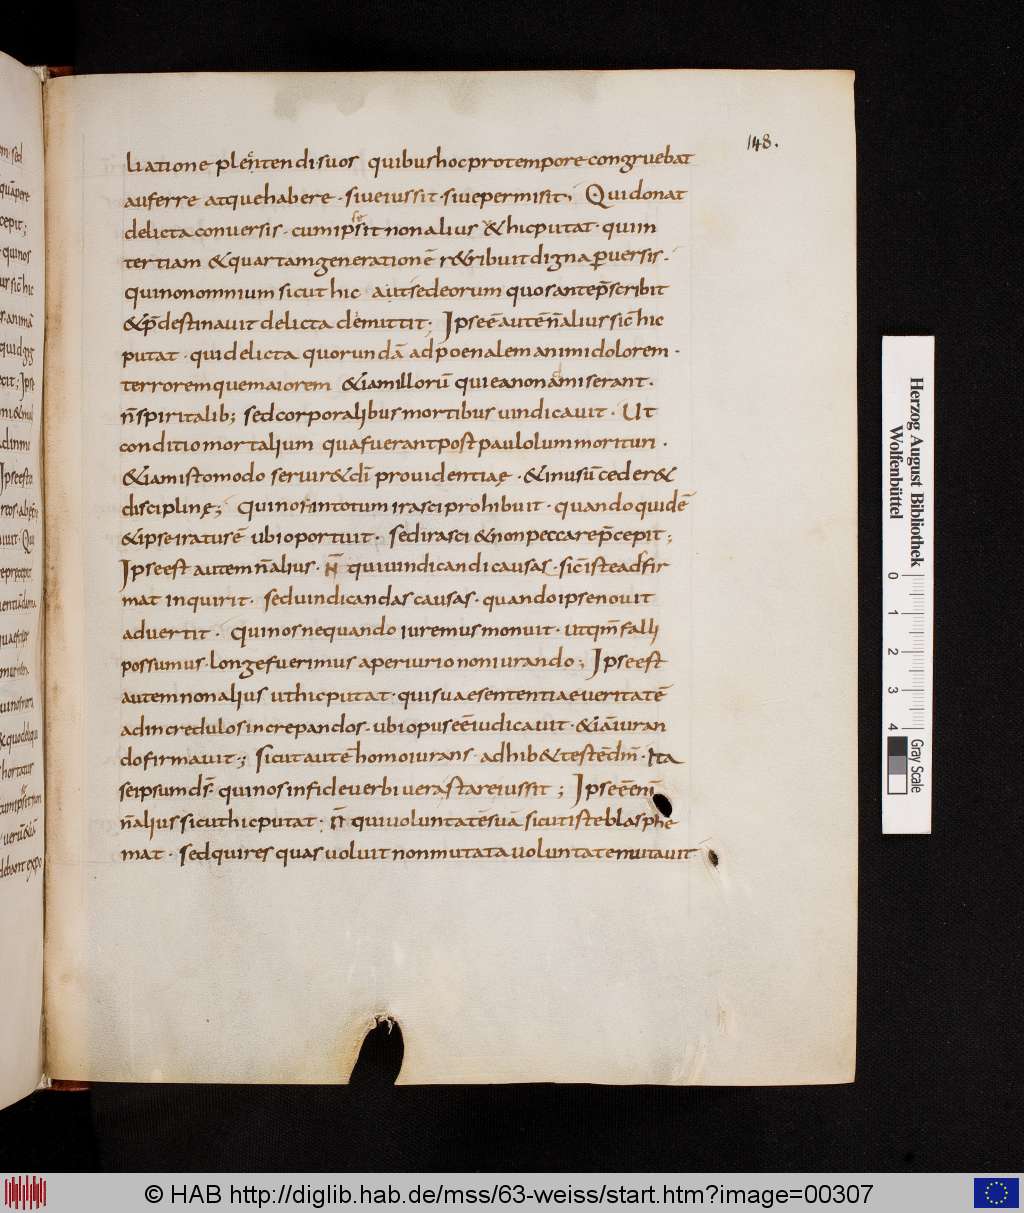 148.
liatione plectendi suos quibus hoc pro tempore congruebat
auferre atque habere · sive iussit · sive permisit; Qui donat
delicta conversis · cum ipse sit non alius & hic putat · qui in
tertiam & quartam generationē r&ribuit digna ꝑversis ·
Qui non omnium sicut hic aut sed eorum quos ante p̄scribit
& p̄destinavit delicta demittit; Ipse ē autē n̄ alius sic̄ hic
putat · qui delicta quorundā ad poenalem animi dolorem ·
terroremque maiorem & iam illorū qui ea non amiserant ·
n̄ spiritalib; sed corporalibus mortibus vindicavit · Ut
conditio mortalium qua fuerant post paululum morituri ·
& iam isto modo servir& dī providentiae · & in usū ceder&
disciplinę; Qui nos in totum irasci prohibuit · quando quidē
& ipse iratus ē ubi oportuit · sed irasci & non peccare p̄cepit;
Ipse est autem n̄ alius · N̄ qui vindicandi causas · sic̄ iste adfir
mat inquirit · sed vindicandas causas · quando ipse novit
advertit · Qui nos nequando iuremus monuit · ut qm̄ falli
possumus · longe fuerimus a periurio non iurando; Ipse est
autem non alius ut hic putat · qui suae sententiae veritatē
ad incredulos increpandos · ubi opus eē iudicavit · & iā iuran
do firmavit; Sicut autē homo iurans · adhib& testē dm̄ · Ita
se ipsum ds̄ · qui nos in fide verbi vera stare iussit; Ipse ē enī
n̄ alius sicut hic putat · N̄ qui voluntatē suā sicut iste blasphe
mat · sed qui res quas voluit non mutata voluntate mutavit
Herzog August Bibliothek
Wolfenbüttel
0 1 2 3 4
Gray Scale
© HAB http://diglib.hab.de/mss/63-weiss/start.htm?image=00307